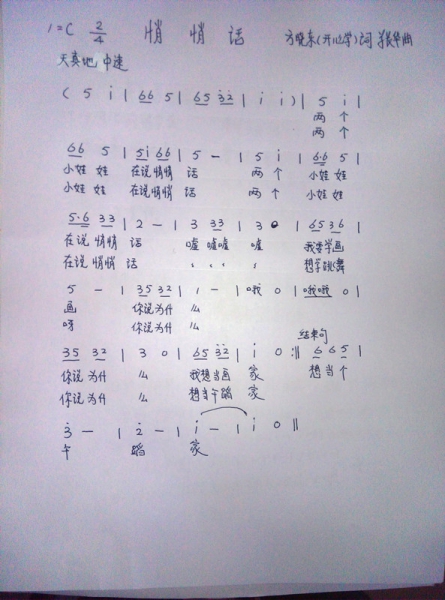 1=C 2/4 悄 悄 话 方晓东(开心学)词 华曲
天真地 中速
( 5 i | 66 5 | 65 32 | i i ) | 5 i |
两 个
两 个
66 5 | 5i 66 | 5 — | 5 i | 6·6 5 |
小娃 娃 在说 悄悄 话 两 个 小娃 娃
小娃 娃 在说 悄悄 话 两 个 小娃 娃
5·6 33 | 2 — | 3 33 | 3 0 | 65 36 |
在说 悄悄 话 嘘 嘘嘘 嘘 我要学画
在说 悄悄 话 , , , , 想学跳舞
5 — | 35 32 | 1 — | 哦 0 | 哦哦 0 |
画 你说 为什 么
呀 你说 为什 么
结束句
35 32 | 3 0 | 65 32 | i 0 :|| 6 65 |
你说 为什 么 我想 当画 家 想 当个
你说 为什 么 想当午蹈 家
3 — | 2 — | i — | i 0 ||
午 蹈 家